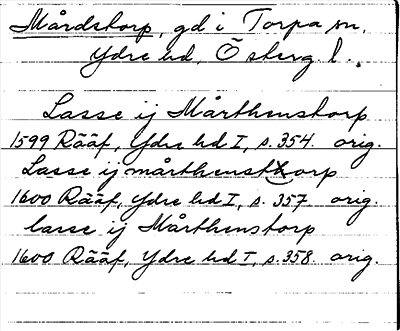 Mårdstorp, gd i Torpa sn,
Ydre hd, Österg. l.
Lasse ij Mårthenstorp
1599 Rääf, Ydre hd I, s. 354. orig.
Lasse ij mårthenstorp
1600 Rääf, Ydre hd I, s. 357. orig.
lasse ij Mårthenstorp
1600 Rääf, Ydre hd I, s. 358. orig.